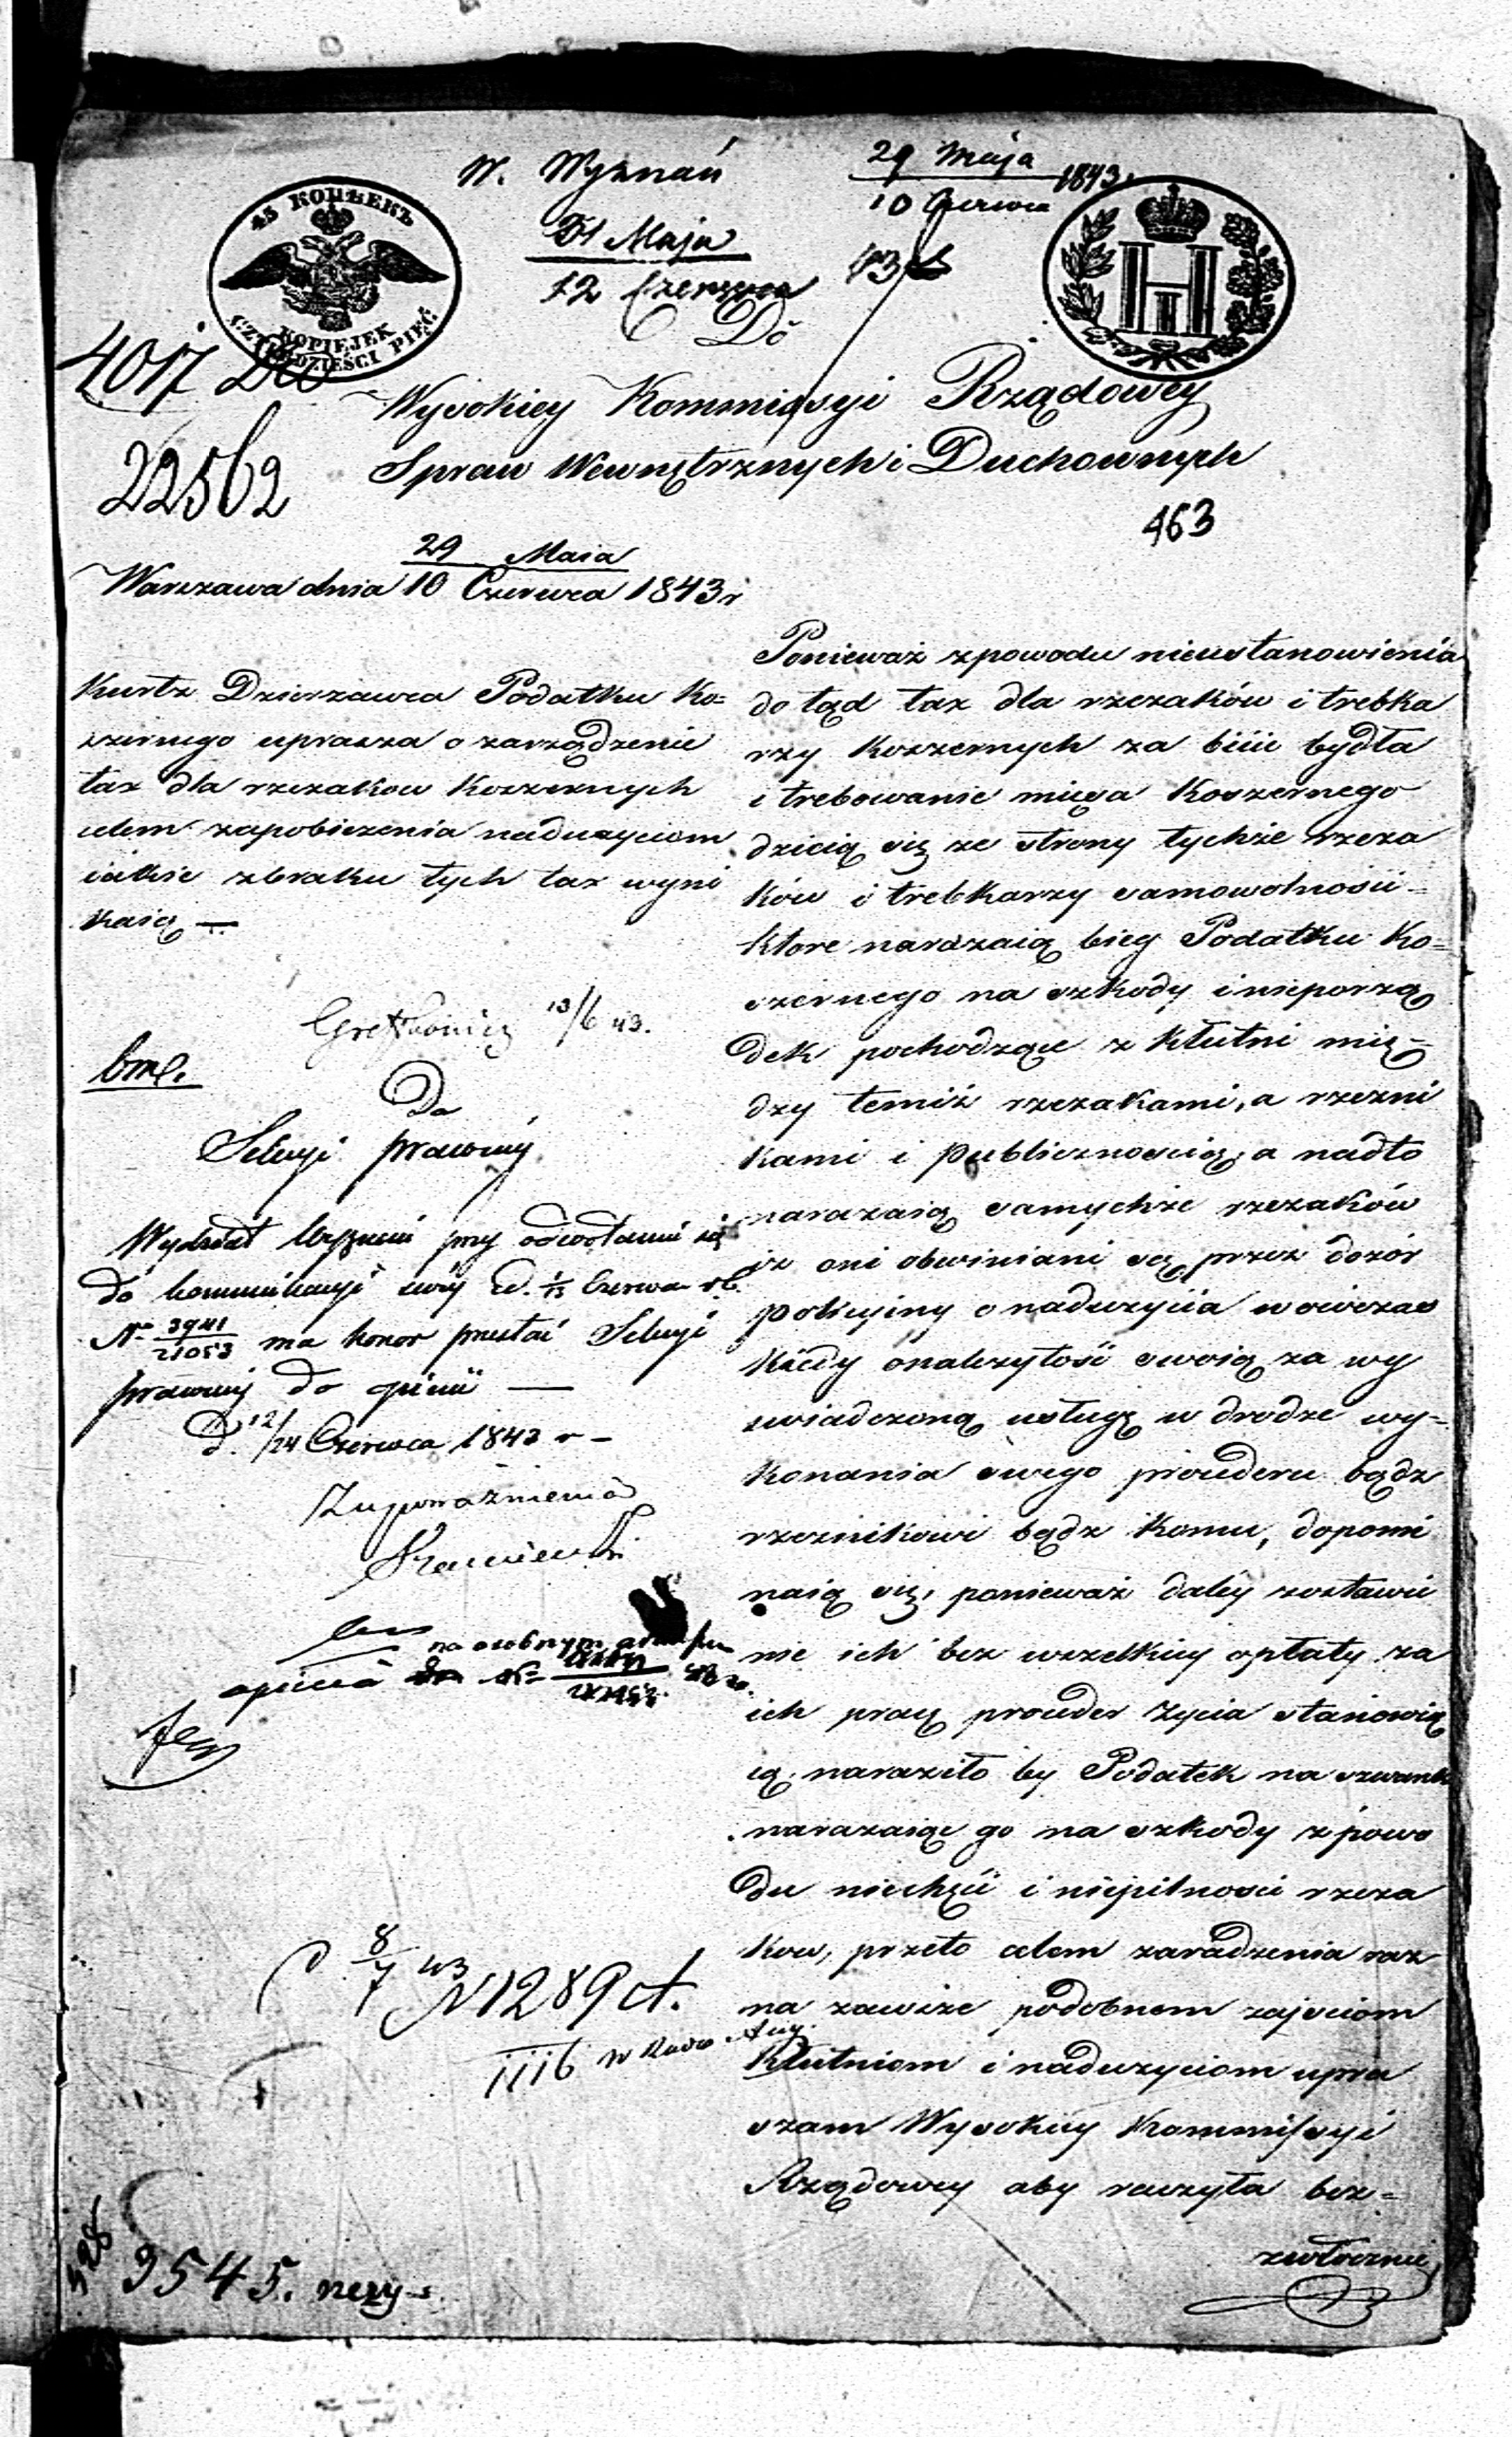 W. Wyznań
29 Maja
10 Czerwca 1843.
31 Maja
12 Czerwca 43
45 КОПѢЕКЪ
KOPIEJEK
CZTERDZIEŚCI PIĘĆ
H
III
Do
4017
22562
Wysokiey Kommissyi Rządowey
Spraw Wewnętrznych i Duchownych
463
29 Maia
Warszawa dnia 10 Czerwca 1843 r
Kurtz Dzierzawca Podatku Ko=
szernego uprasza o zarządzenie
tax dla rzezakow Koszernych
celem zapobieżenia nadużyciom
iakie zbraku tych tax wyni
kaią —
13/6 43.
Do
Sekcyi prawnéy
Wydział Wyznań przy odwołaniu się
do kommunikacyi swéj d. 1/13 Czerwca r.b.
Nr 3941/21053 ma honor przesłać Sekcyi
prawnéj do opinii —
D. 12/24 Czerwca 1843 r —
Z upoważnienia
na osobnym
opinia
8/7 43
N 1289
9545.
Ponieważ zpowodu nieustanowienia
do tąd tax dla rzezaków i trebka
rzy Koszernych za bicie bydła
i trebowanie mięsa Koszernego
dzieią się ze strony tychże rzeza
ków i trebkarzy samowolności =
ktore narażaią bieg Podatku Ko=
szernego na szkody i nieporzą
dek pochodzące z kłutni mię=
dzy temiż rzezakami, a rzezni
kami i Publicznością, a nadto
narażaią samychże rzezaków
iż oni obwiniani są przez dozór
policyiny o nadużycia wówczas
kiedy o należytość swoią za wy
świadczoną usługę w drodze wy=
konania swego proederu bądz
rzeznikowi bądz komu, dopomi
naią się, ponieważ daléy zostawie
nie ich bez wszelkiey opłaty za
ich pracę proeder życia stanowią
cą naraziło by Podatek na szwank
narażaiąc go na szkody z powo
du niechęci i niepilności rzeza
kow, przeto celem zaradzenia raz
na zawsze podobnem zajściom
Kłutniom i nadużyciom upra
szam Wysokiey Kommissyi
Rządowey aby raczyła bez=
zwłocznie